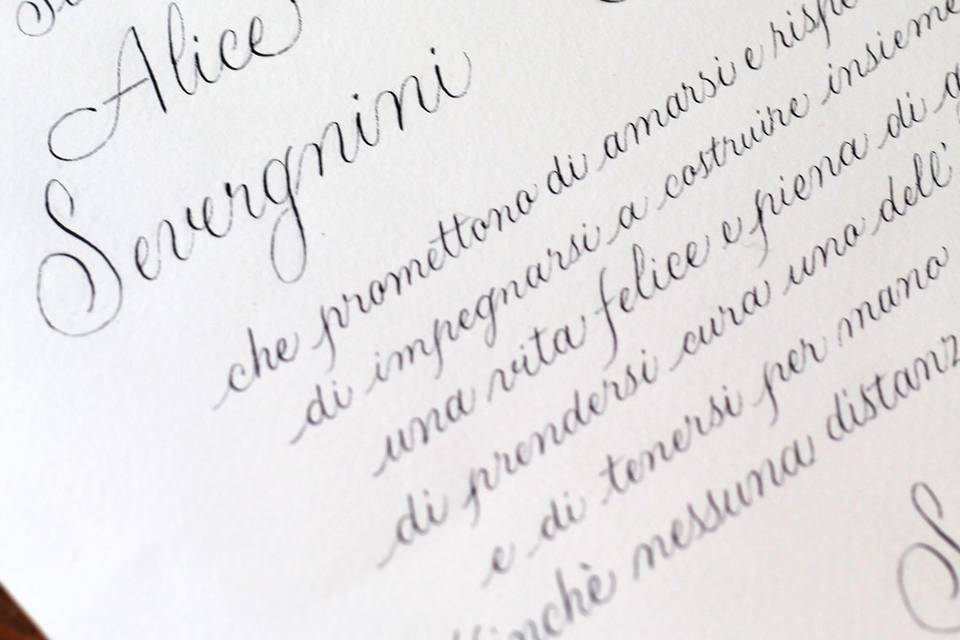 Alice
Severgnini
che promettono di amarsi e rispe
di impegnarsi a costruire insieme
una vita felice e piena di g
di prendersi cura uno dell'
e di tenersi per mano
inchè nessuna distanz
S